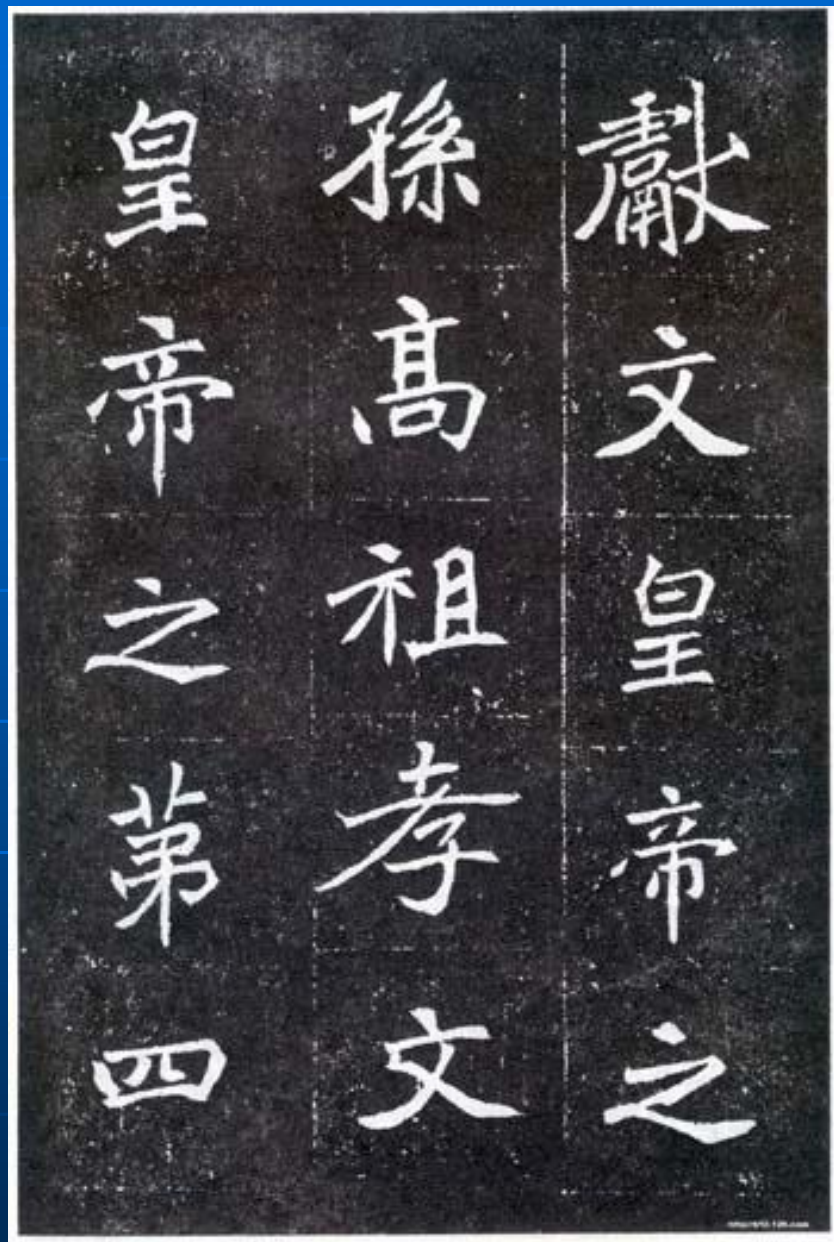 獻文皇帝之
孫高祖孝文
皇帝之第四